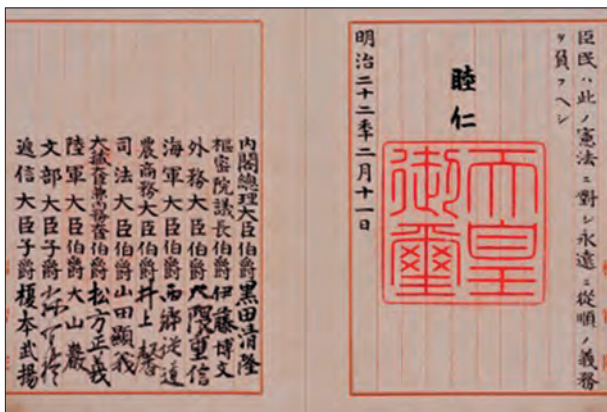 臣民ハ此ノ憲法ニ對シ永遠ニ從順ノ義務
ヲ負フヘシ
睦仁
天皇御璽
明治二十二秊二月十一日
內閣總理大臣伯爵黑田清隆
樞密院議長伯爵伊藤博文
外務大臣伯爵大隈重信
海軍大臣伯爵西鄉從道
農商務大臣伯爵井上馨
司法大臣伯爵山田顯義
大藏大臣兼內務大臣伯爵松方正義
陸軍大臣伯爵大山巖
文部大臣子爵
遞信大臣子爵榎本武揚